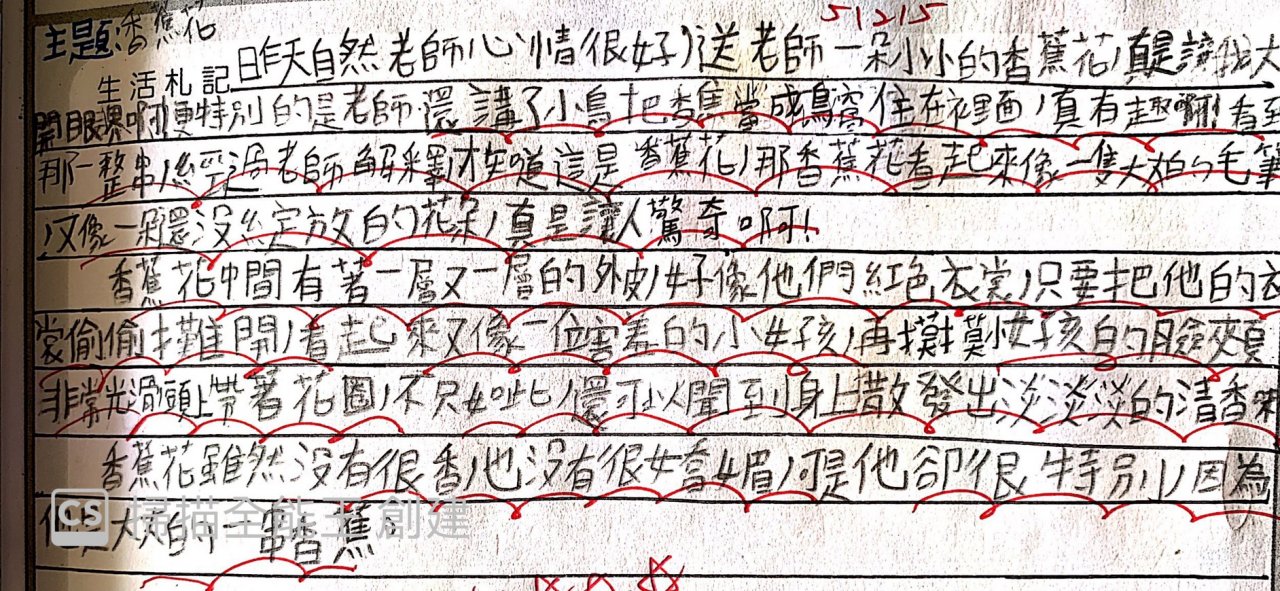 51215
主題:香蕉花
生活札記
昨天自然老師心情很好,送老師一朵小小的香蕉花,真是讓我大
開眼界啊!更特別的是老師還講了小鳥把香蕉當成鳥窩住在裡面,真有趣啊!看到
那一整串,經過老師解釋才知道這是香蕉花,那香蕉花看起來像一隻大大的毛筆
,又像一朵還沒綻放的花朵,真是讓人驚奇啊!
香蕉花中間有著一層又一層的外皮,好像他們紅色衣裳,只要把他的衣
裳偷偷打開,看起來又像一位害羞的小女孩,再摸摸小女孩的臉頰
非常光滑頭上帶著花圈,不只如此,還可以聞到身上散發出淡淡淡的清香味
香蕉花雖然沒有很香,也沒有很女嵋,可是他卻很特別,因為
一串香蕉。
CS 掃描全能王 創建